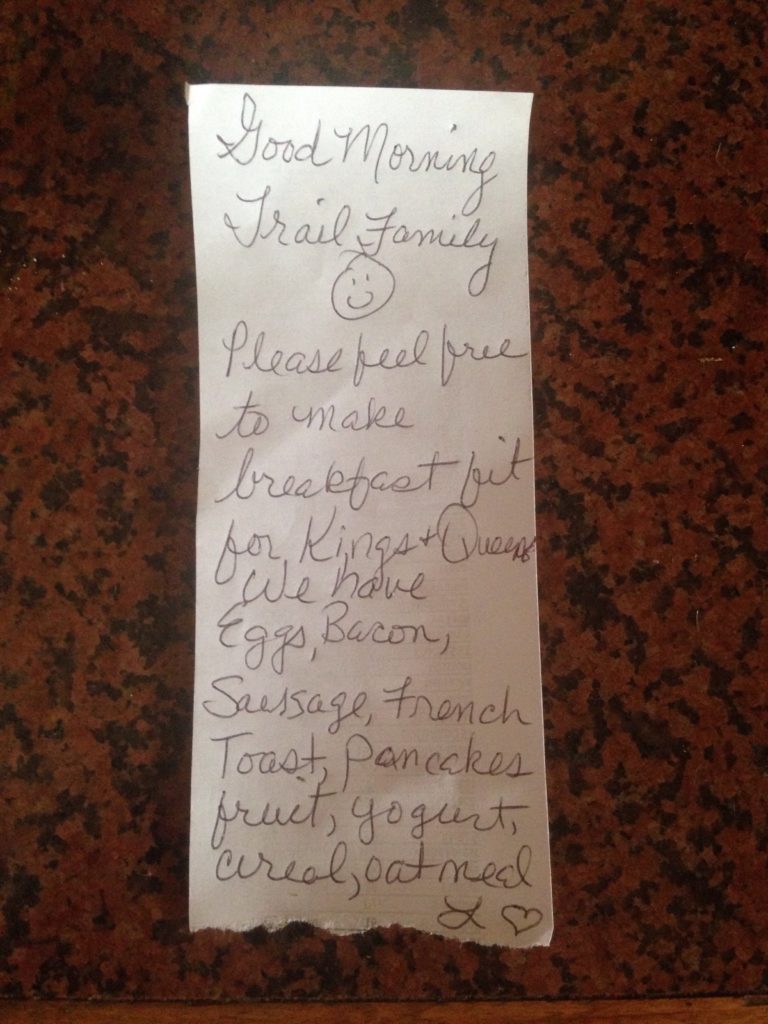 Good Morning
Trail Family
Please feel free
to make
breakfast fit
for Kings + Queens
We have
Eggs, Bacon,
Sausage, French
Toast, Pancakes
fruit, yogurt,
cereal, oatmeal